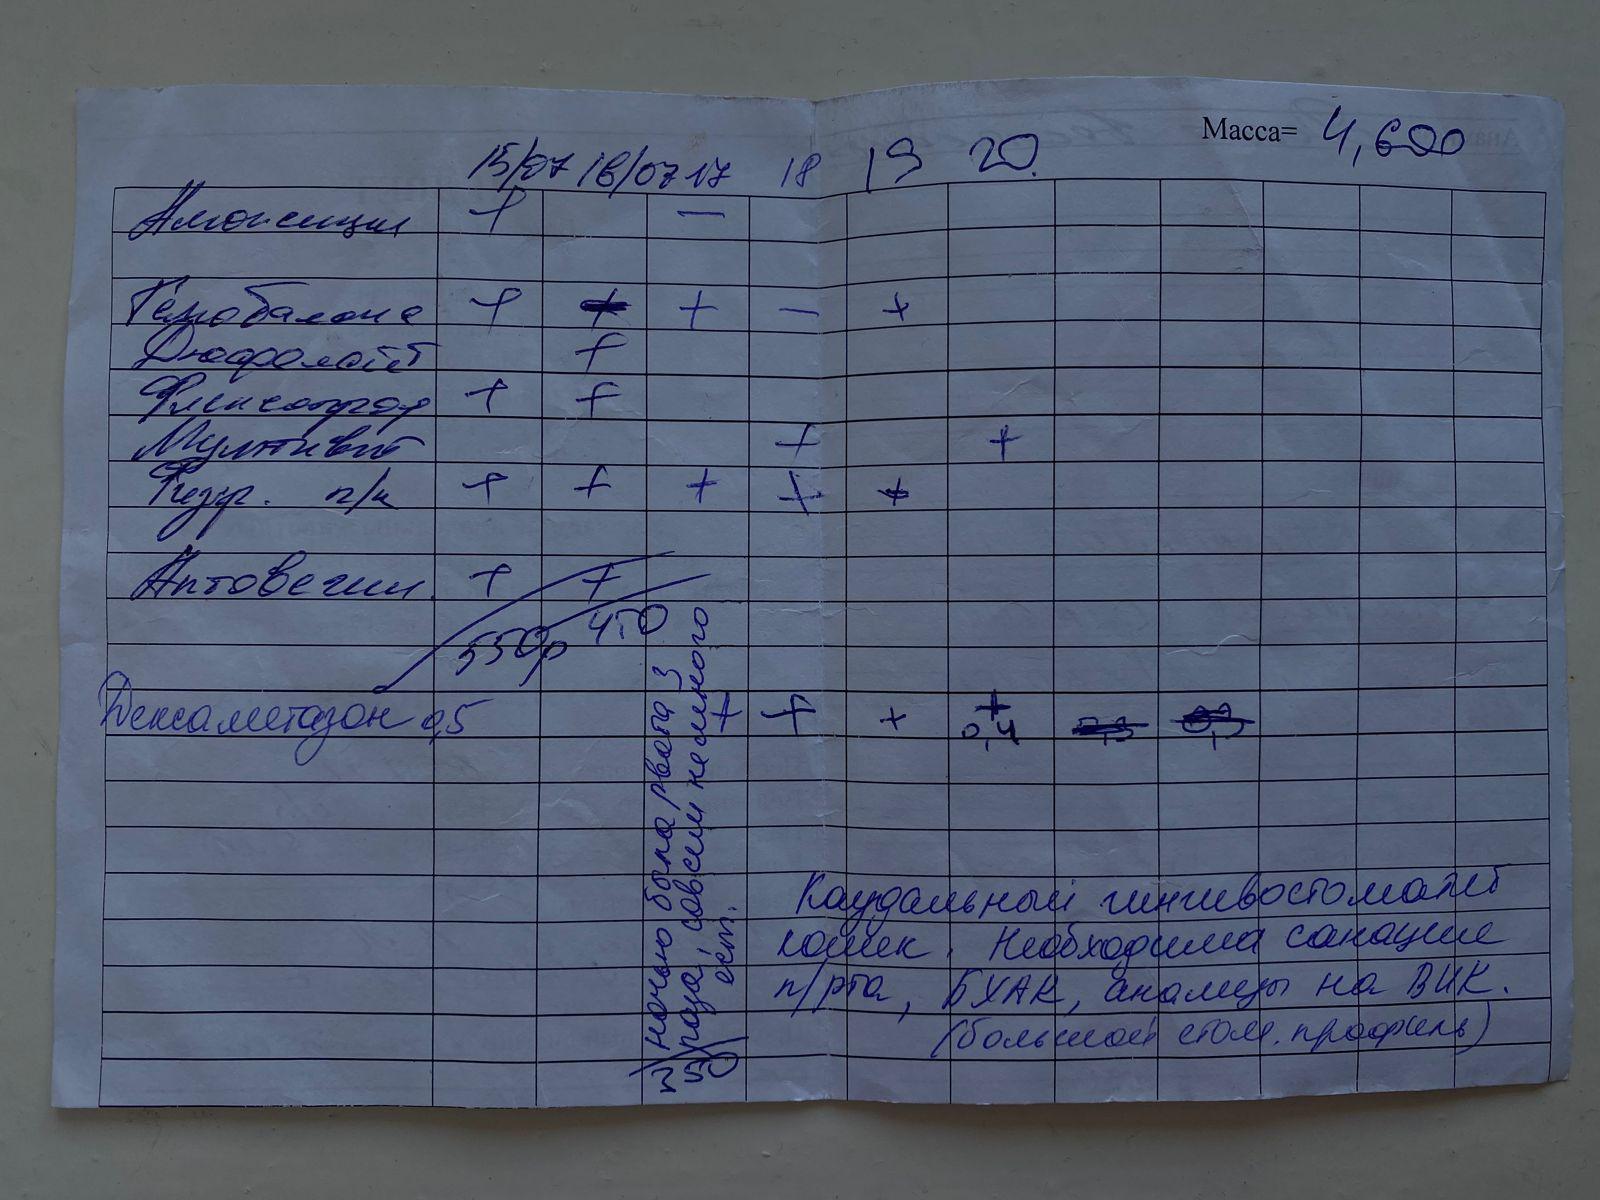 Масса= 4,600
15/07 16/07 17 18 19 20.
Амоксицил + —
Гемобаланс + + + — +
Дюфалайт +
Флексопроф + +
Мультивит + +
Гидр. п/к + + + + +
Актовегин. + +
550р 450
Дексаметазон 0,5 + + + +
0,4
ночью была рвота 3
раза, совсем немного
ест.
Каудальный гингивостоматит
кошек. Необходима санация
п/рта, БХАК, анализы на ВИК.
(большой стом. профиль)